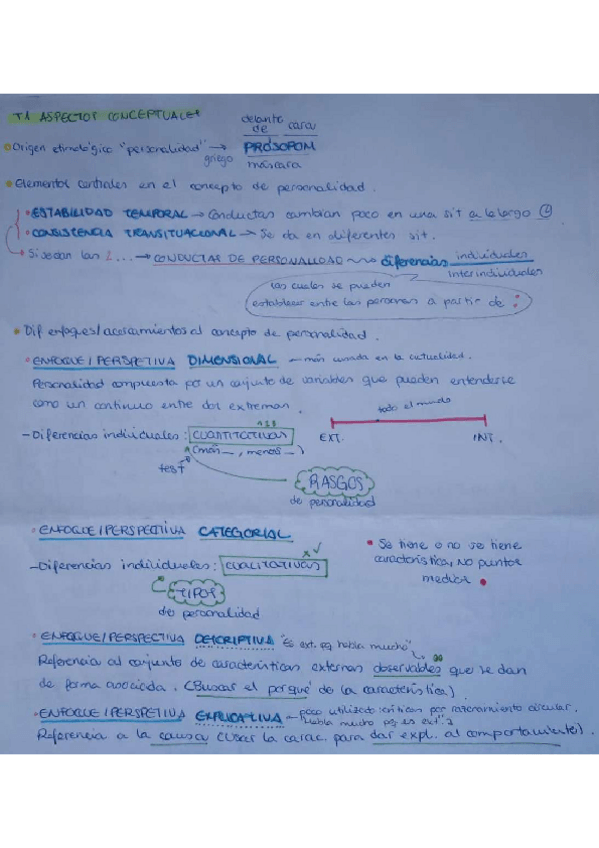 T.1 ASPECTOS CONCEPTUALES
delante de cara
• Origen etimológico "personalidad" → PRÓSOPOM
griego máscara
• Elementos centrales en el concepto de personalidad.
• ESTABILIDAD TEMPORAL → Conductas cambian poco en una sit a lo largo
• CONSISTENCIA TRANSITUACIONAL → Se da en diferentes sit.
→ Si se dan las 2... → CONDUCTAS DE PERSONALIDAD diferencias individuales
interindividuales
Las cuales se pueden
establecer entre las personas a partir de :
• Dif enfoques/acercamientos al concepto de personalidad.
• ENFOQUE/PERSPETIVA DIMENSIONAL — más usada en la actualidad.
Personalidad compuesta por un conjunto de variables que pueden entenderse
como un continuo entre dos extremos.
todo el mundo
- Diferencias individuales: CUANTITATIVAS
EXT. INT.
(más _, menos _)
test
RASGOS
de personalidad
• ENFOQUE/PERSPECTIVA CATEGORIAL
- Diferencias individuales: CUALITATIVAS
x ✓
• Se tiene o no se tiene
característica, NO puntos
medios
TIPOS
de personalidad
• ENFOQUE/PERSPECTIVA DESCRIPTIVA "Es ext. pq habla mucho"
Referencia al conjunto de características externas observables que se dan
de forma asociada. (Buscar el porqué de la característica).
• ENFOQUE/PERSPETIVA EXPLICATIVA — poco utilizado: críticas por razonamiento circular.
"Habla mucho pq es ext"
Referencia a la causa (usar la carac. para dar expl. al comportamiento).